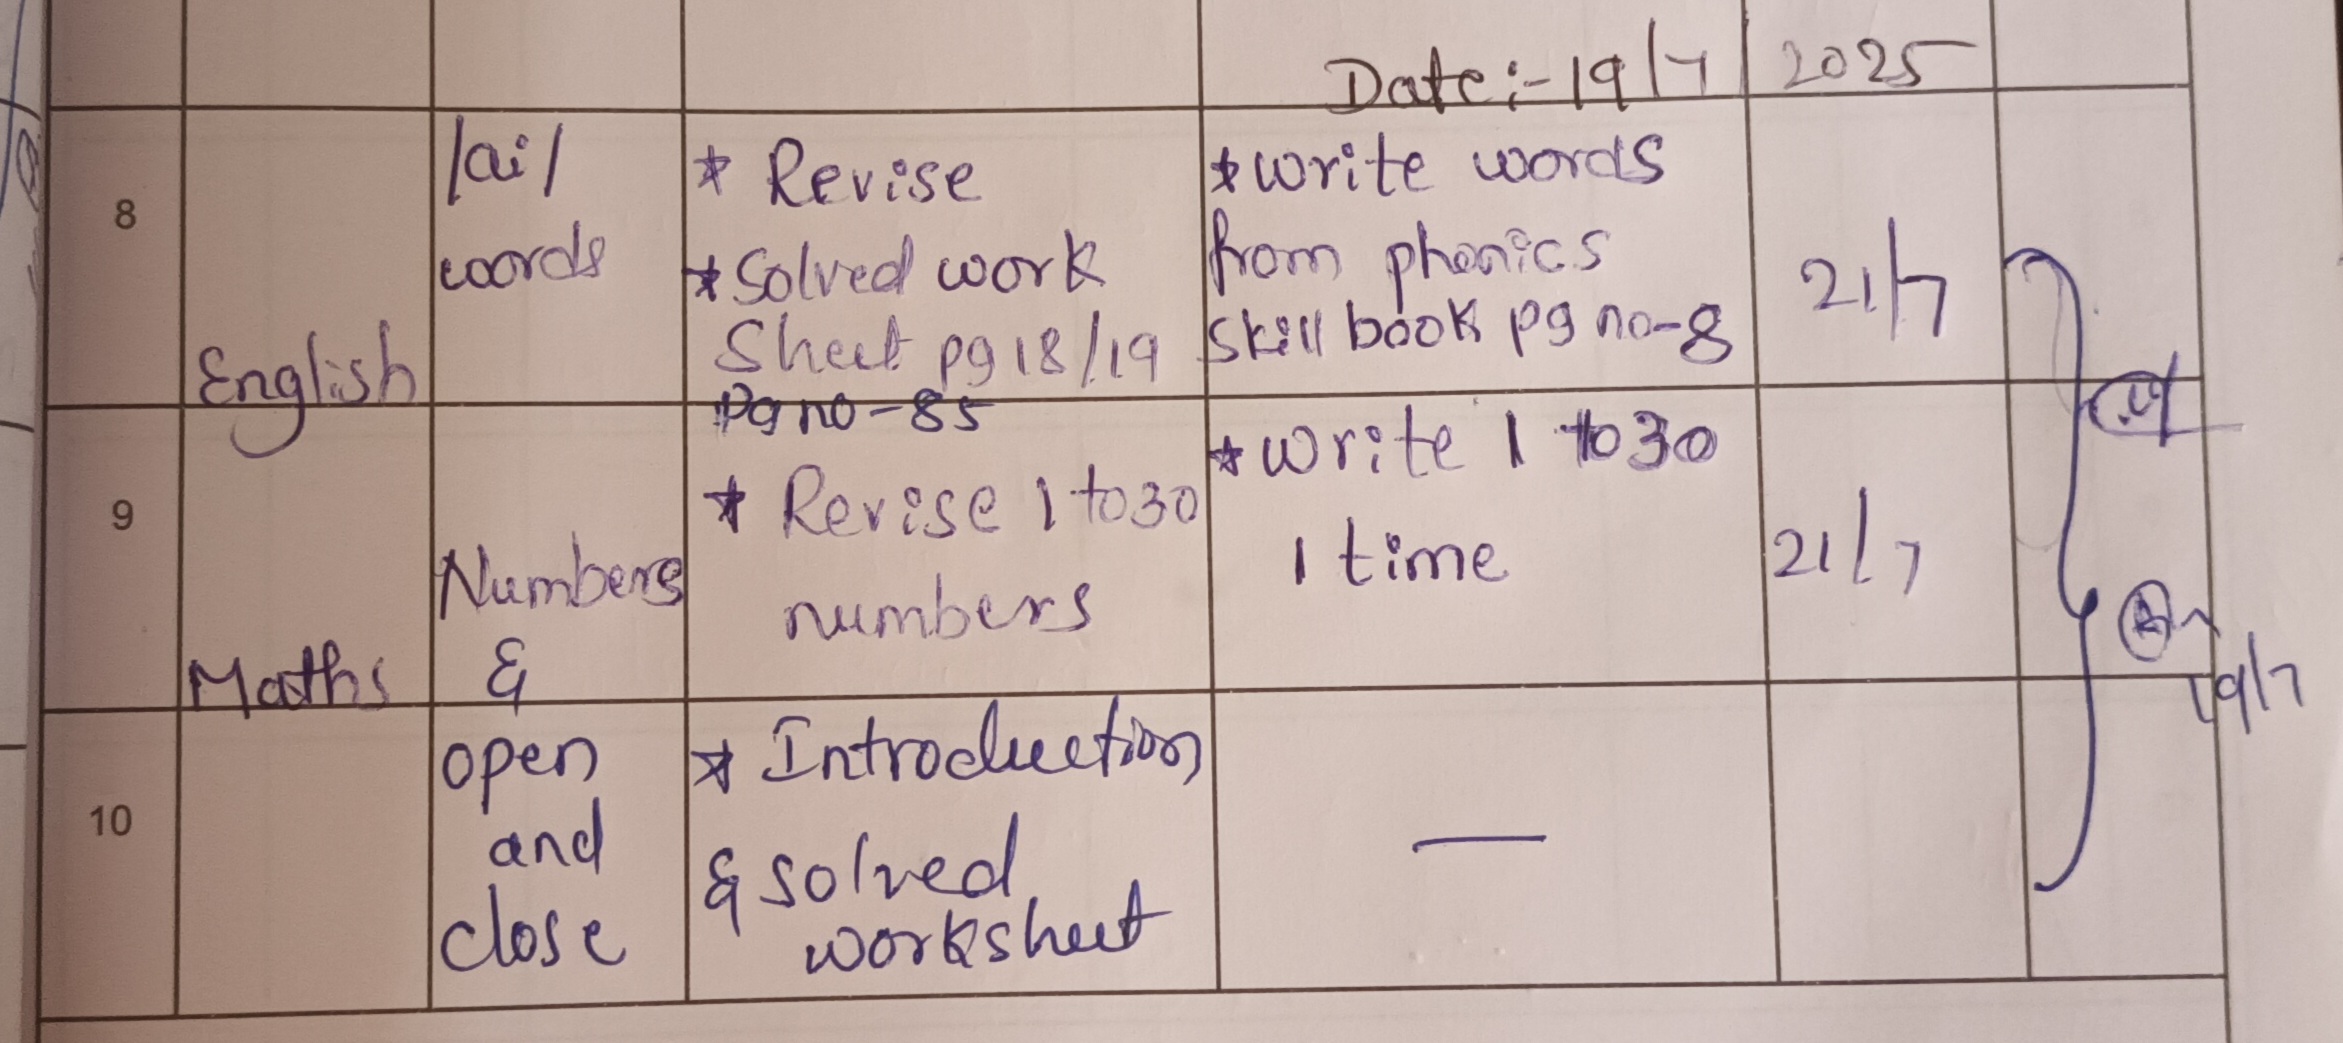 Date:- 19/7/2025
8
English
/ai/
words
* Revise
* Solved work
Sheet pg 18/19
Pg no-85
* write words
from phonics
Skill book pg no-8
21/7
9
Maths
Numbers
&
* Revise 1 to 30
numbers
* Write 1 to 30
1 time
21/7
19/7
10
open
and
close
* Introduction
& solved
worksheet
—